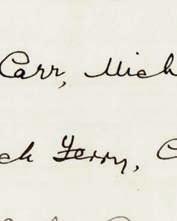 Carr, Mich
ch Ferry, C